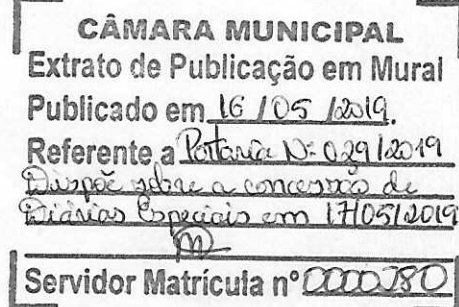 CÂMARA MUNICIPAL
Extrato de Publicação em Mural
Publicado em 16/05/2019.
Referente a Portaria Nº 029/2019
Dispõe sobre a concessão de
Diárias Especiais em 17/05/2019
Servidor Matrícula nº 0000280